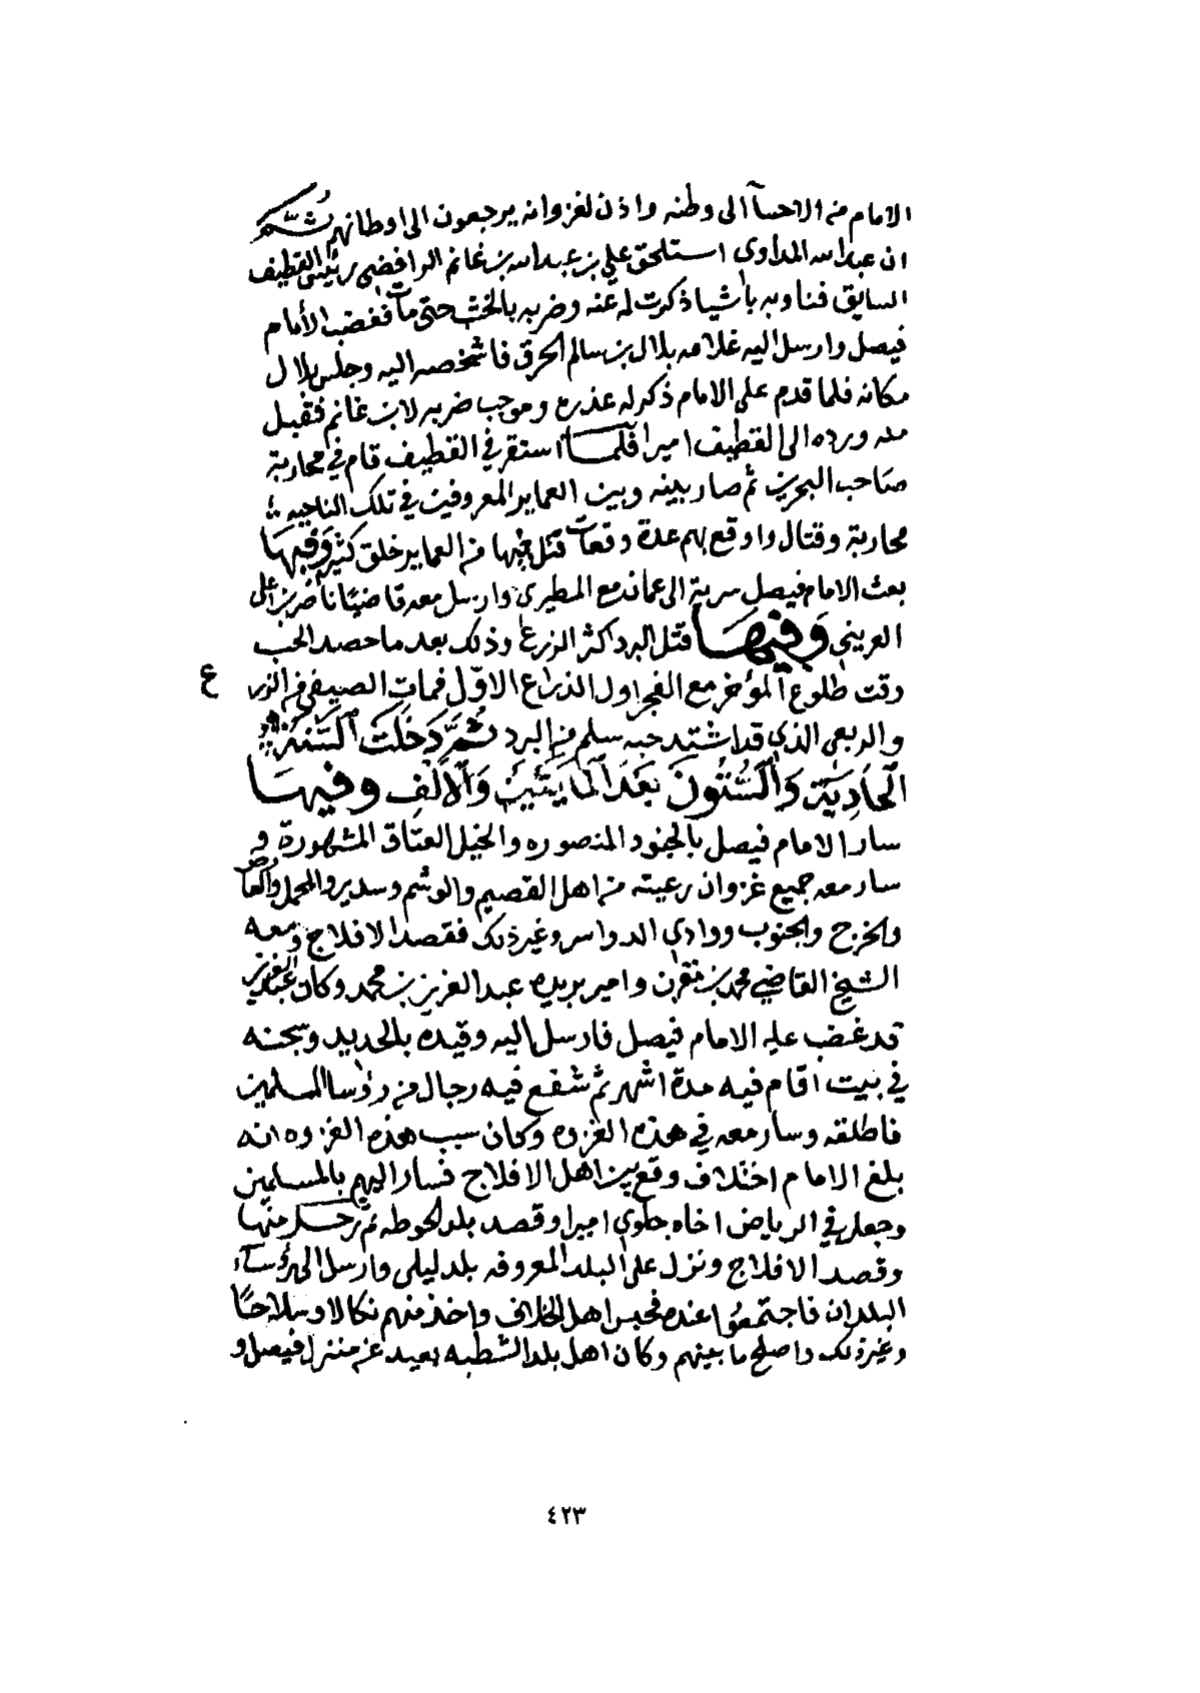 الامام من الاحسآ الى وطنه واذن لغزوانه يرجعون الى اوطانهم ثُمَّ
ان عبدالله المداوي استلحق علي بن عبدالله بن غانم الرافضي رئيس القطيف
السابق فناوبه باشيا ذكرت له عنه وضربه بالخشب حتى مات فغضب الأمام
فيصل وارسل اليه غلامه بلال بن سالم الحرق فاشخصه اليه وجلس بلال
مكانه فلما قدم على الامام ذكر له عذره وموجب ضربه لابن غانم فقبل
منه ورده الى القطيف اميرا فلمـا استقر في القطيف قام في محاربة
صاحب البحرين ثم صار بينه وبين العماير المعروفين في تلك الناحيه
محاربة وقتال واوقع بهم عدة وقعات قتل فيها من العماير خلق كثير وَفيهَا
بعث الامام فيصل سرية الى عمان مع المطيري وارسل معه قاضيًا ناصر بن علي
العريني وَفيهَا قتل البرد اكثر الزرع وذلك بعد ما حصد الحب
وقت طلوع المؤخر مع الفجر اول الذراع الاوّل فمات الصيفي من الزرع
والربعي الذي قد اشتد حبه سلم من البرد ثُمَّ دَخَلَت اَلسَّنَة
اَلحَادِيَة وَالسُّتُونَ بَعْدَ اَلمَايَتَينِ وَالأَلفِ وفيهَا
سار الامام فيصل بالجنود المنصوره والخيل العتاق المشهورة و
سار معه جميع غزوان رعيته من اهل القصيم والوشم وسدير والمحمل والعارض
والخرج والجنوب ووادي الدواسر وغير ذلك فقصد الافلاج ومعه
الشيخ القاضي محمد بن مقرن وامير بريده عبدالعزيز بن محمد وكان عبدالعزيز
قد غضب عليه الامام فيصل فارسل اليه وقيده بالحديد وسجنه
في بيت اقام فيه مدة اشهر ثم شفع فيه رجال من رؤسا المسلمين
فاطلقه وسار معه في هذه الغزوه وكان سبب هذه الغزوه انه
بلغ الامام اختلاف وقع بين اهل الافلاج فسار اليهم بالمسلمين
وجعل في الرياض اخاه جلوي اميرا وقصد بلد الحوطه ثم رحل منها
وقصد الافلاج ونزل على البلد المعروفه بلد ليلى وارسل الى رؤسآء
البلدان فاجتمعوا عنده فحبس اهل الخلاف واخذ منهم نكالا وسلاحًا
وغير ذلك واصلح ما بينهم وكان اهل بلد الشطبه بعيد عن منزل فيصل و
٤٢٣